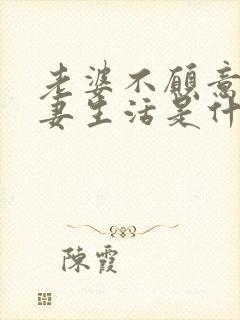 老婆不愿意
妻生活是什
陳霞